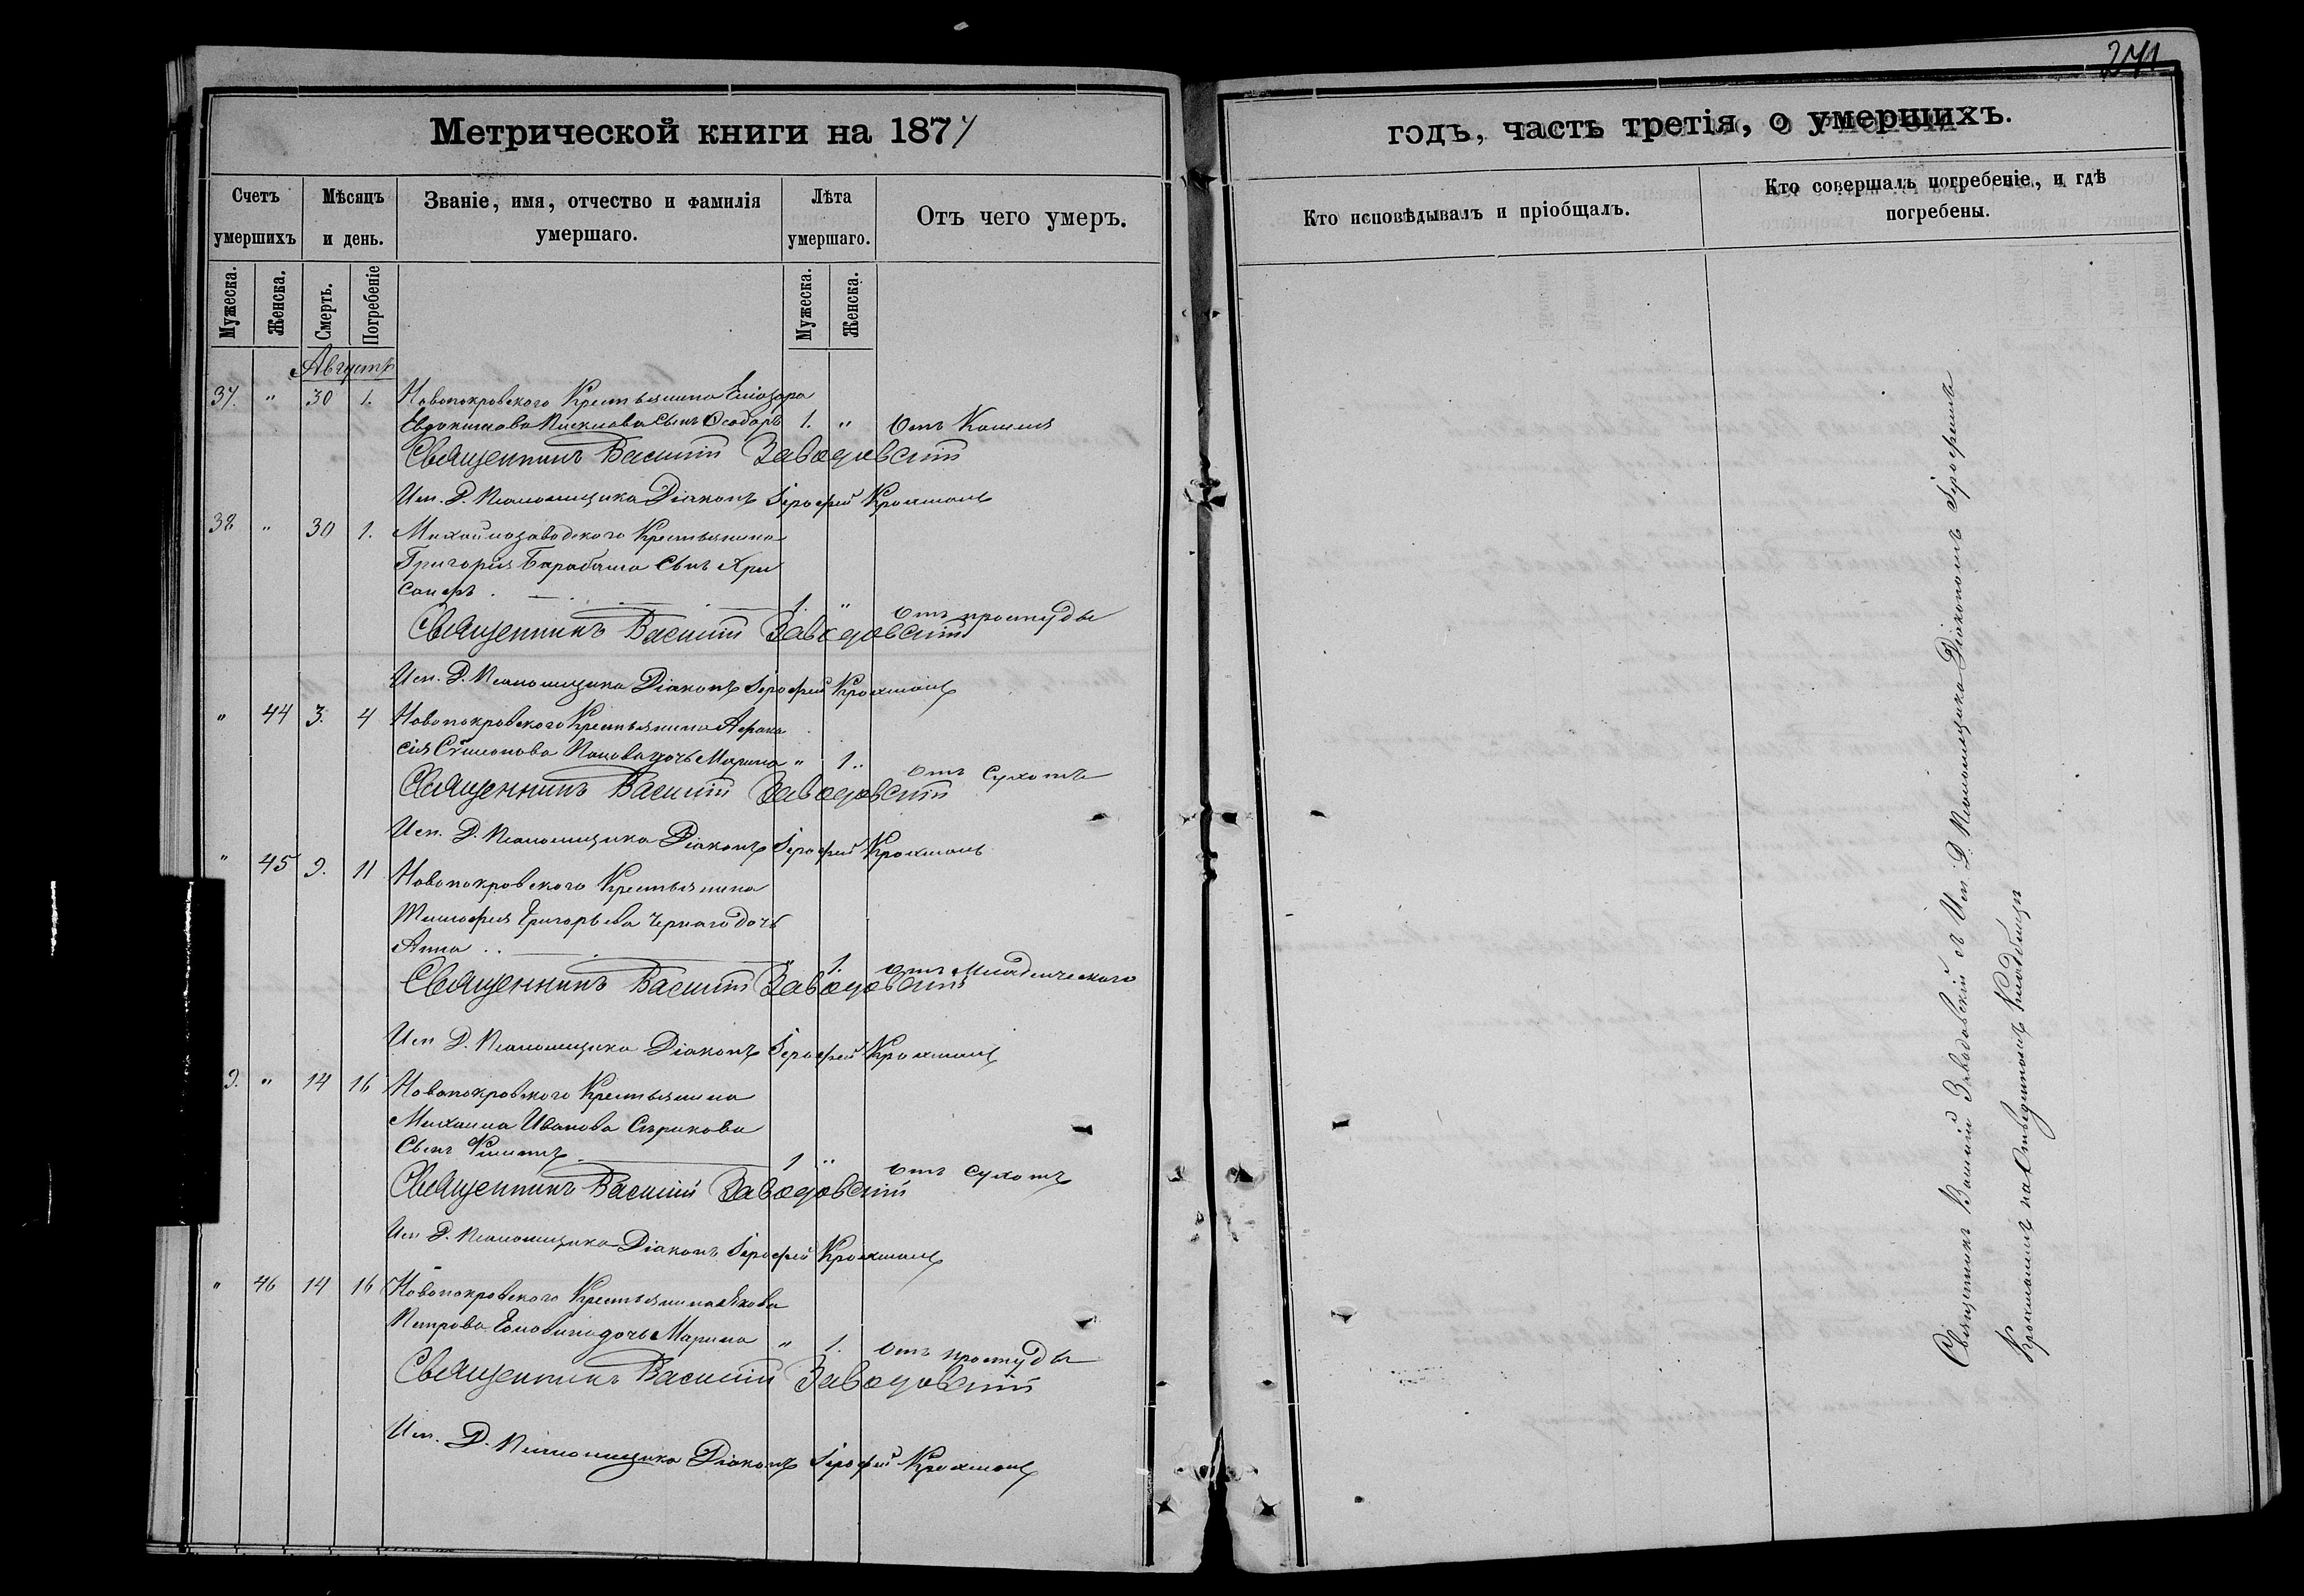 271
Метрической книги на 1877
годъ, часть третія, о умершихъ.
Счетъ умершихъ
Мѣсяцъ и день.
Званіе, имя, отчество и фамилія умершаго.
Лѣта умершаго.
Отъ чего умеръ.
Кто исповѣдывалъ и пріобщалъ.
Кто совершалъ погребеніе, и гдѣ погребены.
Мужеска.
Женска.
Смерть.
Погребеніе
Мужеска.
Женска.
Августъ
37. " 30 1. Новопокровского Крестьянина
Евдокимова сынъ Ѳеодоръ 1. " отъ Кашля
Священникъ Василій Заводовскій
Исп. Д. Псаломщика Діаконъ Іерофей Крохмаль
38 " 30 1. Михайлозаводского Крестьянина
Григорія Барабаша сынъ Хри
санфъ. 1. " отъ простуды
Священникъ Василій Заводовскій
Исп. Д. Псаломщика Діаконъ Іерофей Крохмаль
" 44 3. 4 Новопокровского Крестьянина Афана
сія Симонова Попова дочь Марина " 1. отъ Сухотъ
Священникъ Василій Заводовскій
Исп. Д. Псаломщика Діаконъ Іерофей Крохмаль
" 45 9. 11 Новопокровского Крестьянина
Тимофея Григорьева Чернаго дочь
Анна " 1. отъ Младенческого
Священникъ Василій Заводовскій
Исп Д. Псаломщика Діаконъ Іерофей Крохмаль
9. " 14 16 Новопокровского Крестьянина
Михаила Иванова Сѣрикова
Сынъ 1 " отъ Сухотъ
Священникъ Василій Заводовскій
Исп Д. Псаломщика Діаконъ Іерофей Крохмаль
" 46 14 16 Новопокровского Крестьянина Якова
Петрова дочь Марина " 1. отъ простуды
Священникъ Василій Заводовскій
Исп. Д. Псаломщика Діаконъ Іерофей Крохмаль
Священникъ Василій Заводовскій съ Исп. Д. Псаломщика Діакономъ Іерофеемъ
Крохмалемъ на Отведенномъ Кладбищѣ